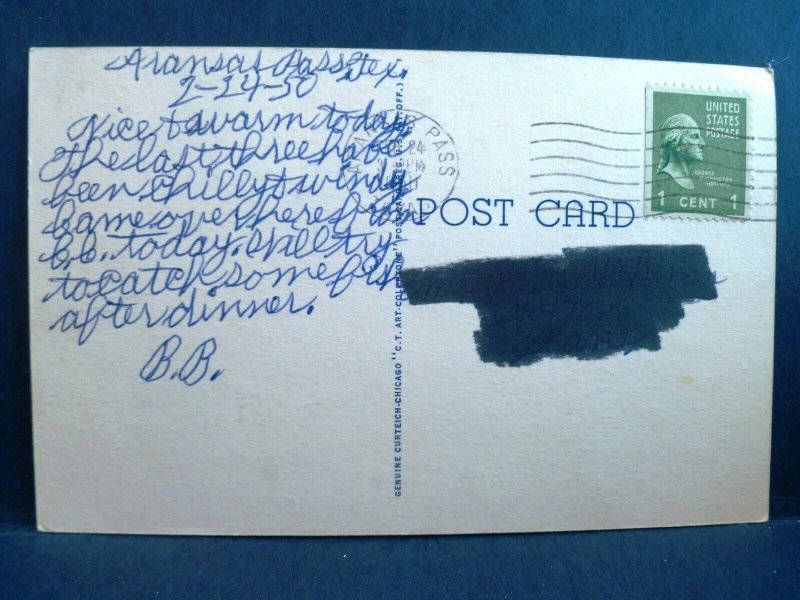 Aransas Pass, Tex.
2-24-50
Nice & warm today,
the last three have
been chilly & windy
Came over here from
C.C. today. Will try
to catch some fish
after dinner.
B.B.
GENUINE CURTEICH-CHICAGO "C.T. ART-COLORTONE" POSTCARD (REG. U.S. PAT. OFF.)
PASS
24
PM
POST CARD
UNITED
STATES
POSTAGE
GEORGE
WASHINGTON
1 CENT 1